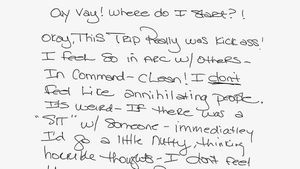 Oy Vay! Where do I start?!
Okay, This Trip Really was kick ass!
I feel so in ARC w/others-
In Command- CLean! I don't
feel Like annihilating people.
Its weird- If there was a
"SIT" w/ someone - immediatley
I'd go a little nutty, thinking
horrible thoughts- I don't feel